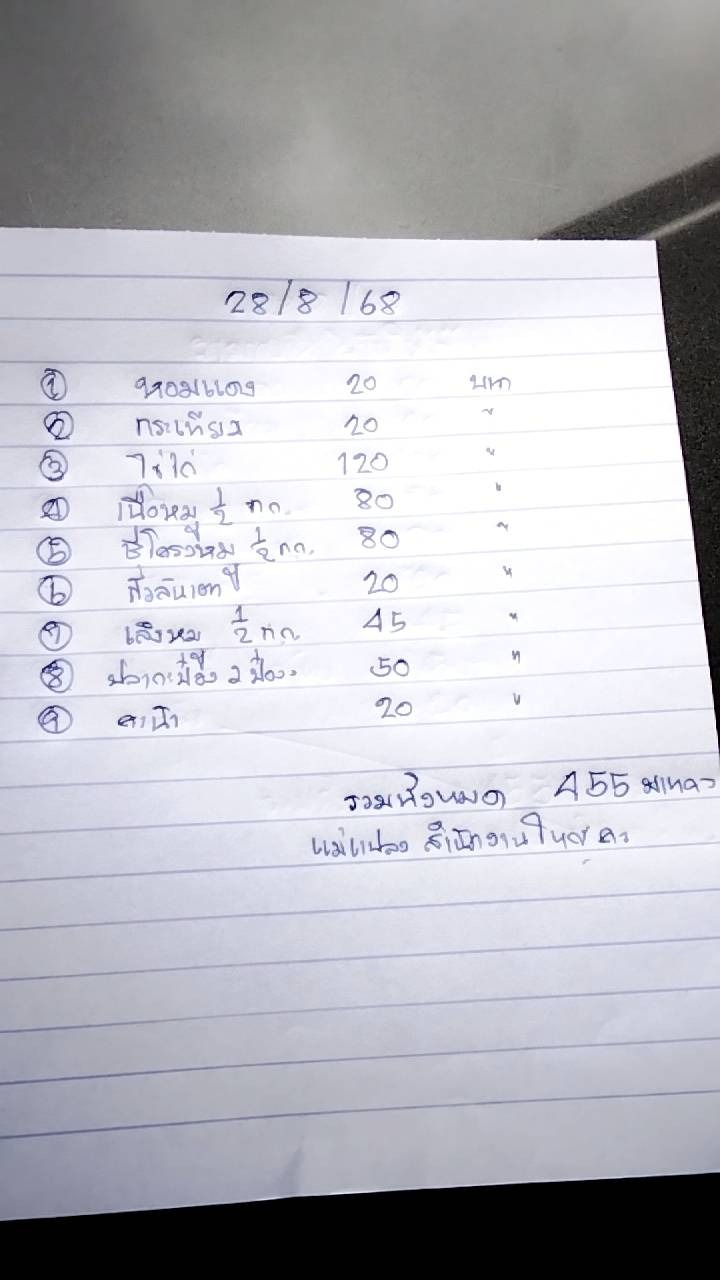 28/8/68
① หอมแดง 20 บาท
② กระเทียม 20 "
③ ไข่ไก่ 120 "
④ เนื้อหมู 1/2 กก. 80 "
⑤ ซี่โครงหมู 1/2 กก. 80 "
⑥ ถั่วลันเตา 20 "
⑦ 1/2 กก 45 "
⑧ ปลากะป๋อง 2 ป๋อง 50 "
⑨ คะน้า 20 "
รวมทั้งหมด 455
สำนักงานใหญ่ คะ